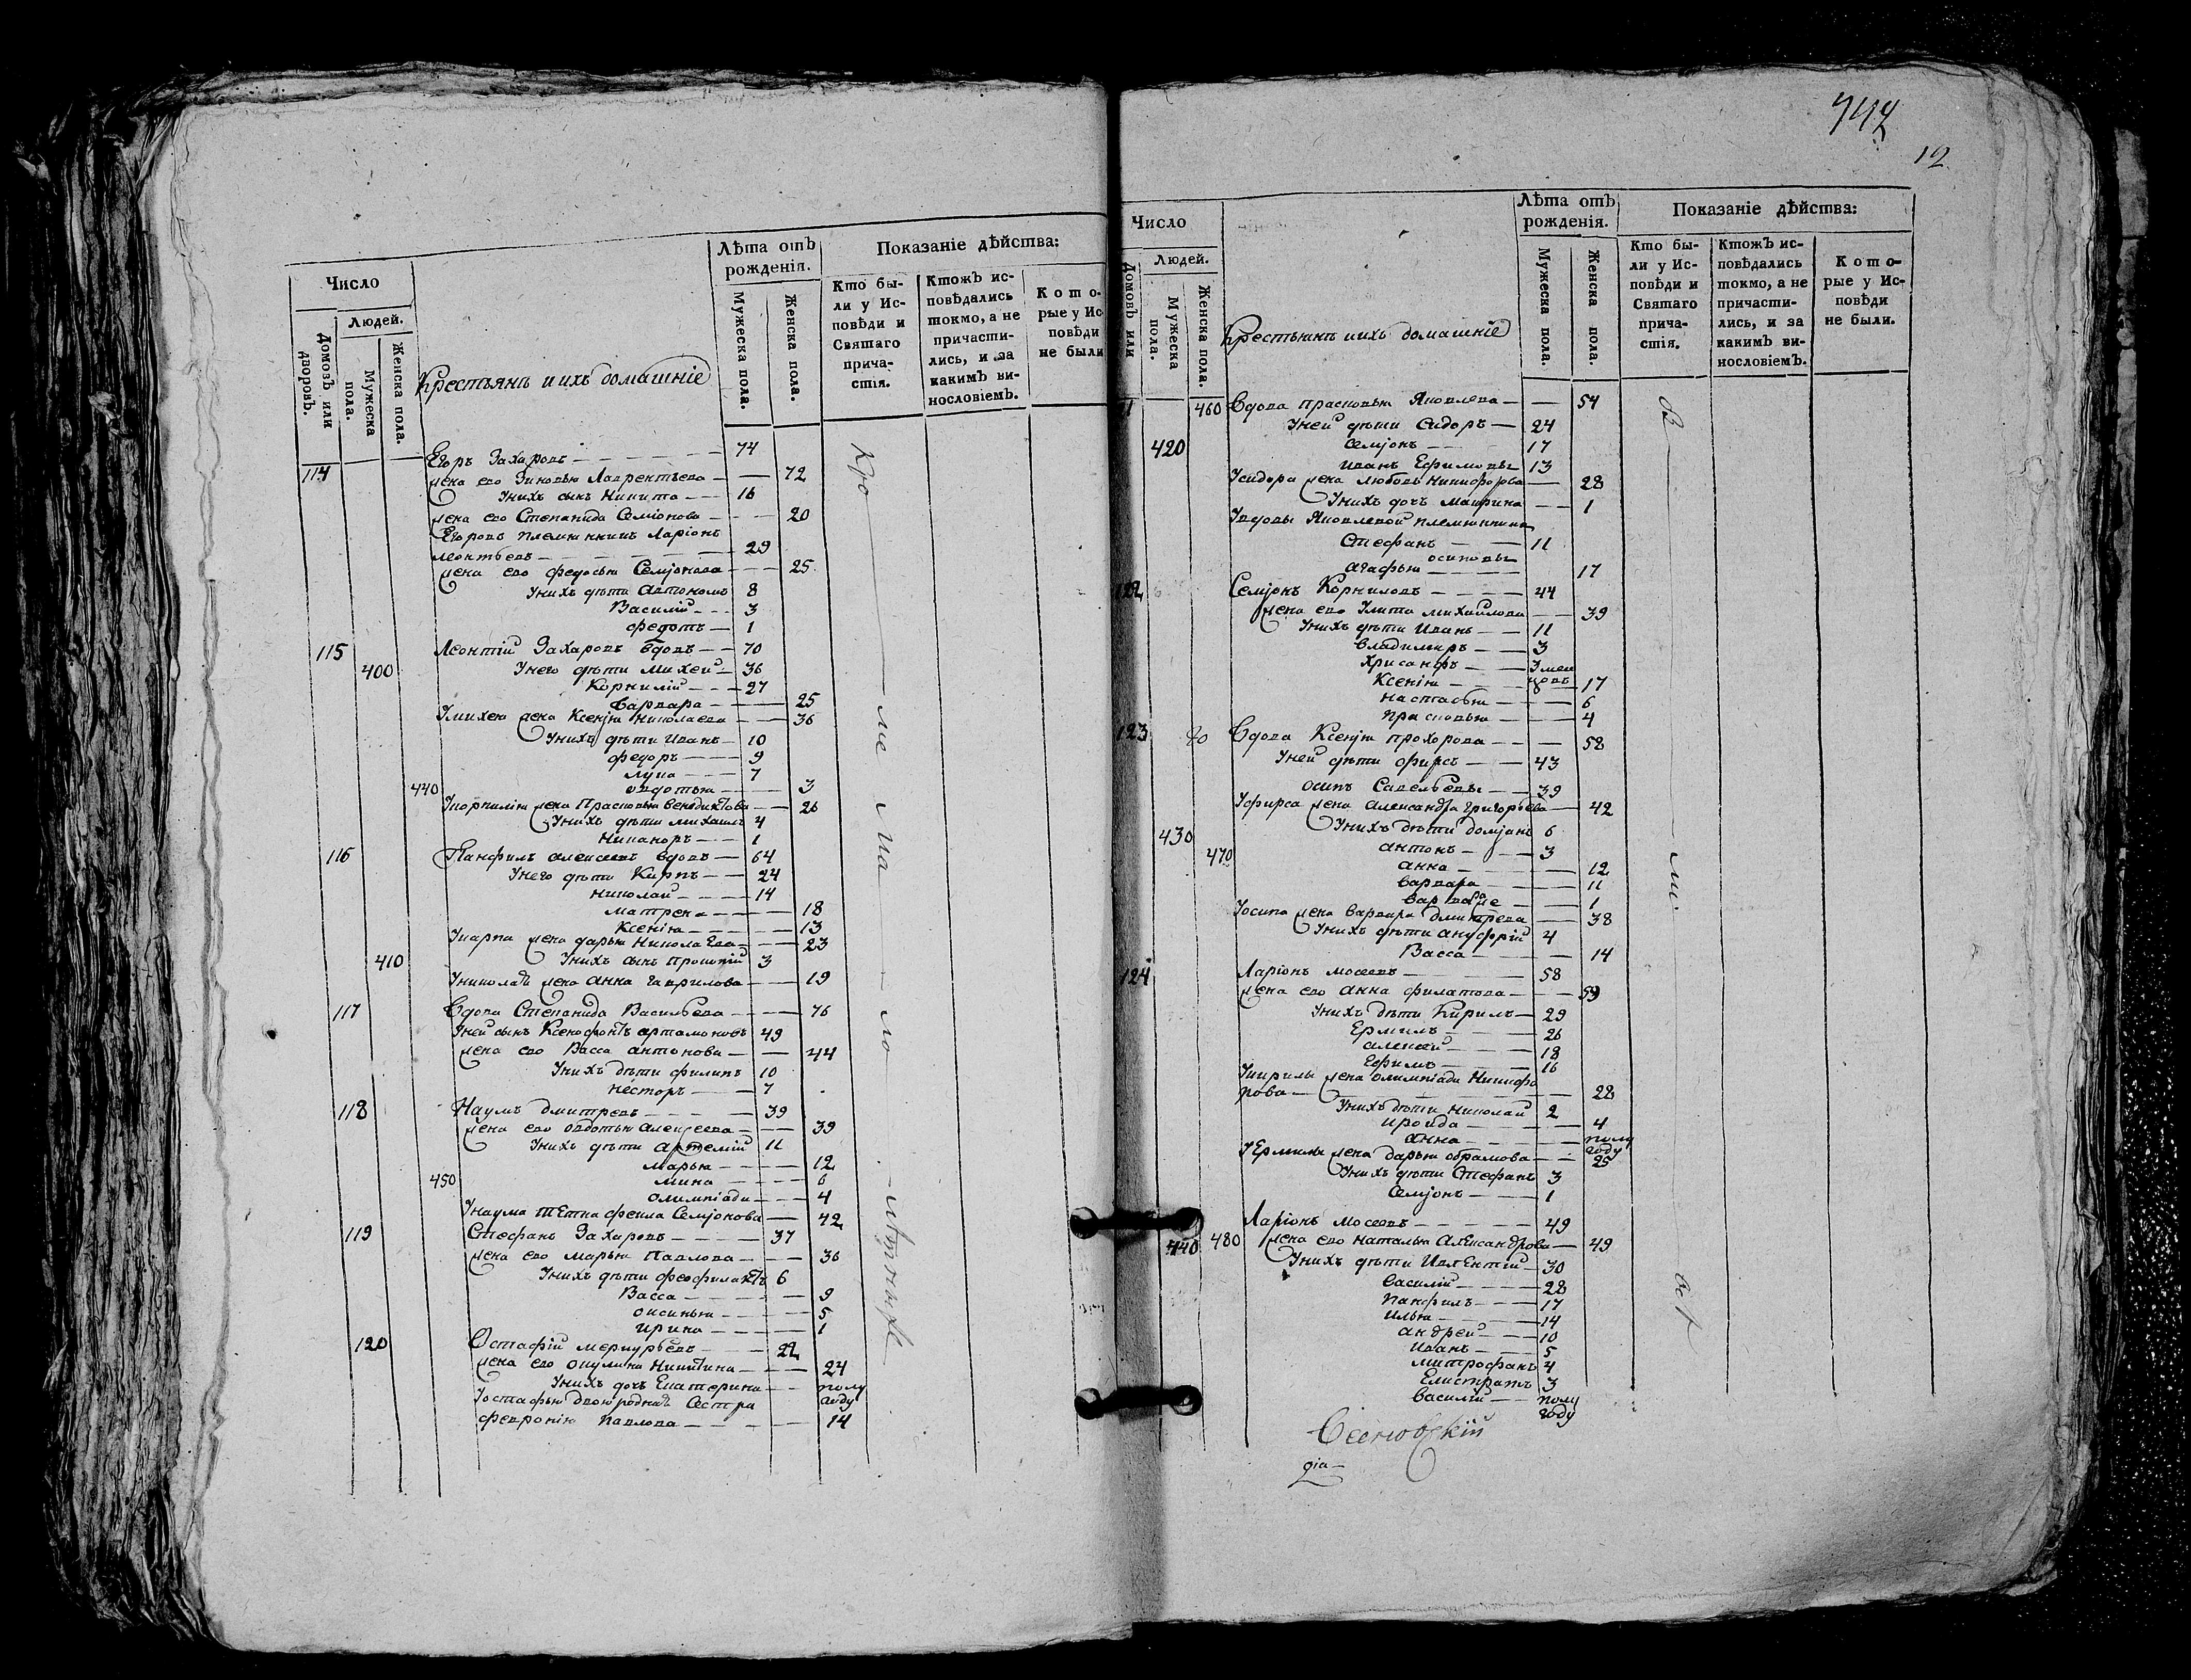 Число
Людей.
Домовъ или дворовъ.
Мужеска пола.
Женска пола.
Крестьянъ иихъ домашніе
Лѣта отъ рожденія.
Мужеска пола.
Женска пола.
Показаніе дѣйства:
Кто бы-
ли у Ис-
повѣди и
Святаго
прича-
стія.
Ктожъ ис-
повѣдались
токмо, а не
причасти-
лись, и за
какимъ ви-
нословіемъ.
Кото-
рые у Ис-
повѣди
не были
114 Егоръ Захаровъ 74
жена ево Зиновья Лаврентьева 72
Унихъ сынъ Никита 16
жена ево Степанида Семіонова 20
Егоровъ племянникъ Ларіонъ
леонтьевъ 29
жена ево федосья Семіонова 25
Унихъ дѣти Автономъ 8
Василій 3
федотъ 1
115 Леонтій Захаровъ вдовъ 70
400 Унего дѣти михей 36
Корнилій 27
Варвара 25
Умихея жена Ксенія Николаева 36
Унихъ дѣти Иванъ 10
федоръ 9
лука 7
440 овдотья 3
Укорнилія жена Прасковья Венедиктова 26
Унихъ дѣти михаилъ 4
Никаноръ 1
116 Панфилъ алексеевъ вдовъ 64
Унего дѣти Карпъ 24
николай 14
матрена 18
Ксенія 13
Укарпа жена дарья Николаева 23
410 Унихъ сынъ Прокопій 3
Униколая жена Анна Гаврилова 19
117 Вдова Степанида Васильева 76
Уней сынъ Ксенофонтъ артамоновъ 49
жена ево Васса антонова 44
Унихъ дѣти филипъ 10
несторъ 7
118 Наумъ дмитревъ 39
жена ево овдотья Алексеева 39
Унихъ дѣти артемій 11
марья 12
450 мина 6
олимпіада 4
Унаума тетка фекла Семіонова 42
119 Стефанъ Захаровъ 37
жена ево марья Павлова 36
Унихъ дѣти феофилактъ 6
Васса 9
оксинья 5
ирина 1
120 Остафій меркурьевъ 22
жена ево окулина Никитина 24
Унихъ дочь Екатерина полу
году
Уостафья двоюродная сестра
феврония Павлова 14
747
12
Число
Людей.
Домовъ или
Мужеска пола.
Женска пола.
Крестьянъ иихъ домашніе
Лѣта отъ рожденія.
Мужеска пола.
Женска пола.
Показаніе дѣйства:
Кто бы-
ли у Ис-
повѣди и
Святаго
прича-
стія.
Ктожъ ис-
повѣдались
токмо, а не
причасти-
лись, и за
какимъ ви-
нословіемъ.
Кото-
рые у Ис-
повѣди
не были.
460 Вдова прасковья Яковлева 54
Уней дѣти Сидоръ 24
420 Семіонъ 17
иванъ Ефимовы 13
Усидора жена любовь Никифорова 28
Унихъ дочь Маврина 1
Увдовы Яковлевой племянники
Стефанъ 11
осиповы
агафья 17
122 Семіонъ Корниловъ 44
жена ево Улита михайлова 39
Унихъ дѣти Иванъ 11
владимиръ 3
Хрисанфъ 3 мец
цовъ
Ксенія 17
настасья 6
прасковья 4
123 Вдова Ксенія прохорова 58
Уней дѣти фирсъ 43
осипъ Савельевы 39
Уфирса жена александра григорьева 42
430 Унихъ дѣти доміанъ 6
470 антонъ 3
анна 12
варвара 11
1
Уосипа жена варвара дмитрева 38
Унихъ дѣти ануфрій 4
Васса 14
124 Ларіонъ мосеевъ 58
жена ево анна филатова 59
Унихъ дѣти Кирилъ 29
Ермилъ 26
алексей 18
Ефимъ 16
Укирилы жена олимпіада Никифо
рова 22
Унихъ дѣти Николай 2
ироида 4
анна полу
году
Уермилы жена дарья абрамова 25
Унихъ дѣти Стефанъ 3
Семіонъ 1
Ларіонъ мосеевъ 49
440 480 жена ево наталья Александрова 49
Унихъ дѣти Ивлентій 30
василій 28
панфилъ 17
илья 14
андрей 10
иванъ 5
митрофанъ 4
Елистратъ 3
василій полу
году
дia